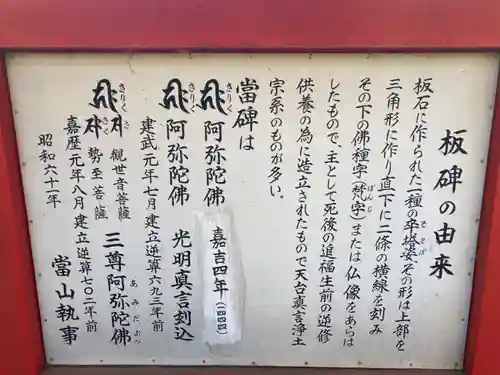 板碑の由来
板石に作られた一種の卒塔婆その形は上部を
そとば
三角形に作り直下に二條の横線を刻み
その下の佛種字（梵字）または仏像をあらは
ぼんじ
したもので、主として死後の追福生前の逆修
供養の為に造立されたもので天台真言浄土
宗系のものが多い。
當碑は
阿弥陀佛 嘉吉四年（一四四四）
きりく
阿弥陀佛 光明真言刻込
きりく
建武元年七月建立逆算六九三年前
観世音菩薩
きりく
さ
三尊阿弥陀佛
あみだぶつ
勢至菩薩
さく
嘉歴元年八月建立逆算七〇二年前
昭和六十一年
當山執事